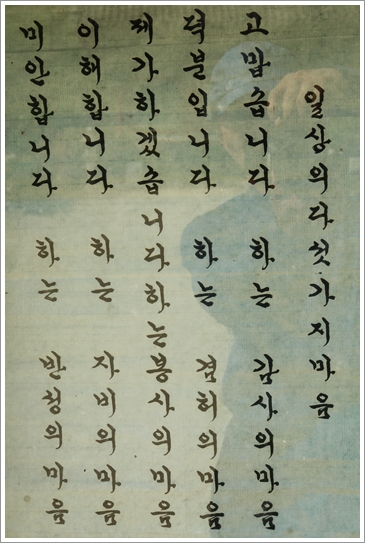 일상의 다섯가지 마음
고맙습니다 하는 감사의 마음
덕분입니다 하는 겸허의 마음
제가 하겠습니다 하는 봉사의 마음
이해합니다 하는 자비의 마음
미안합니다 하는 반성의 마음